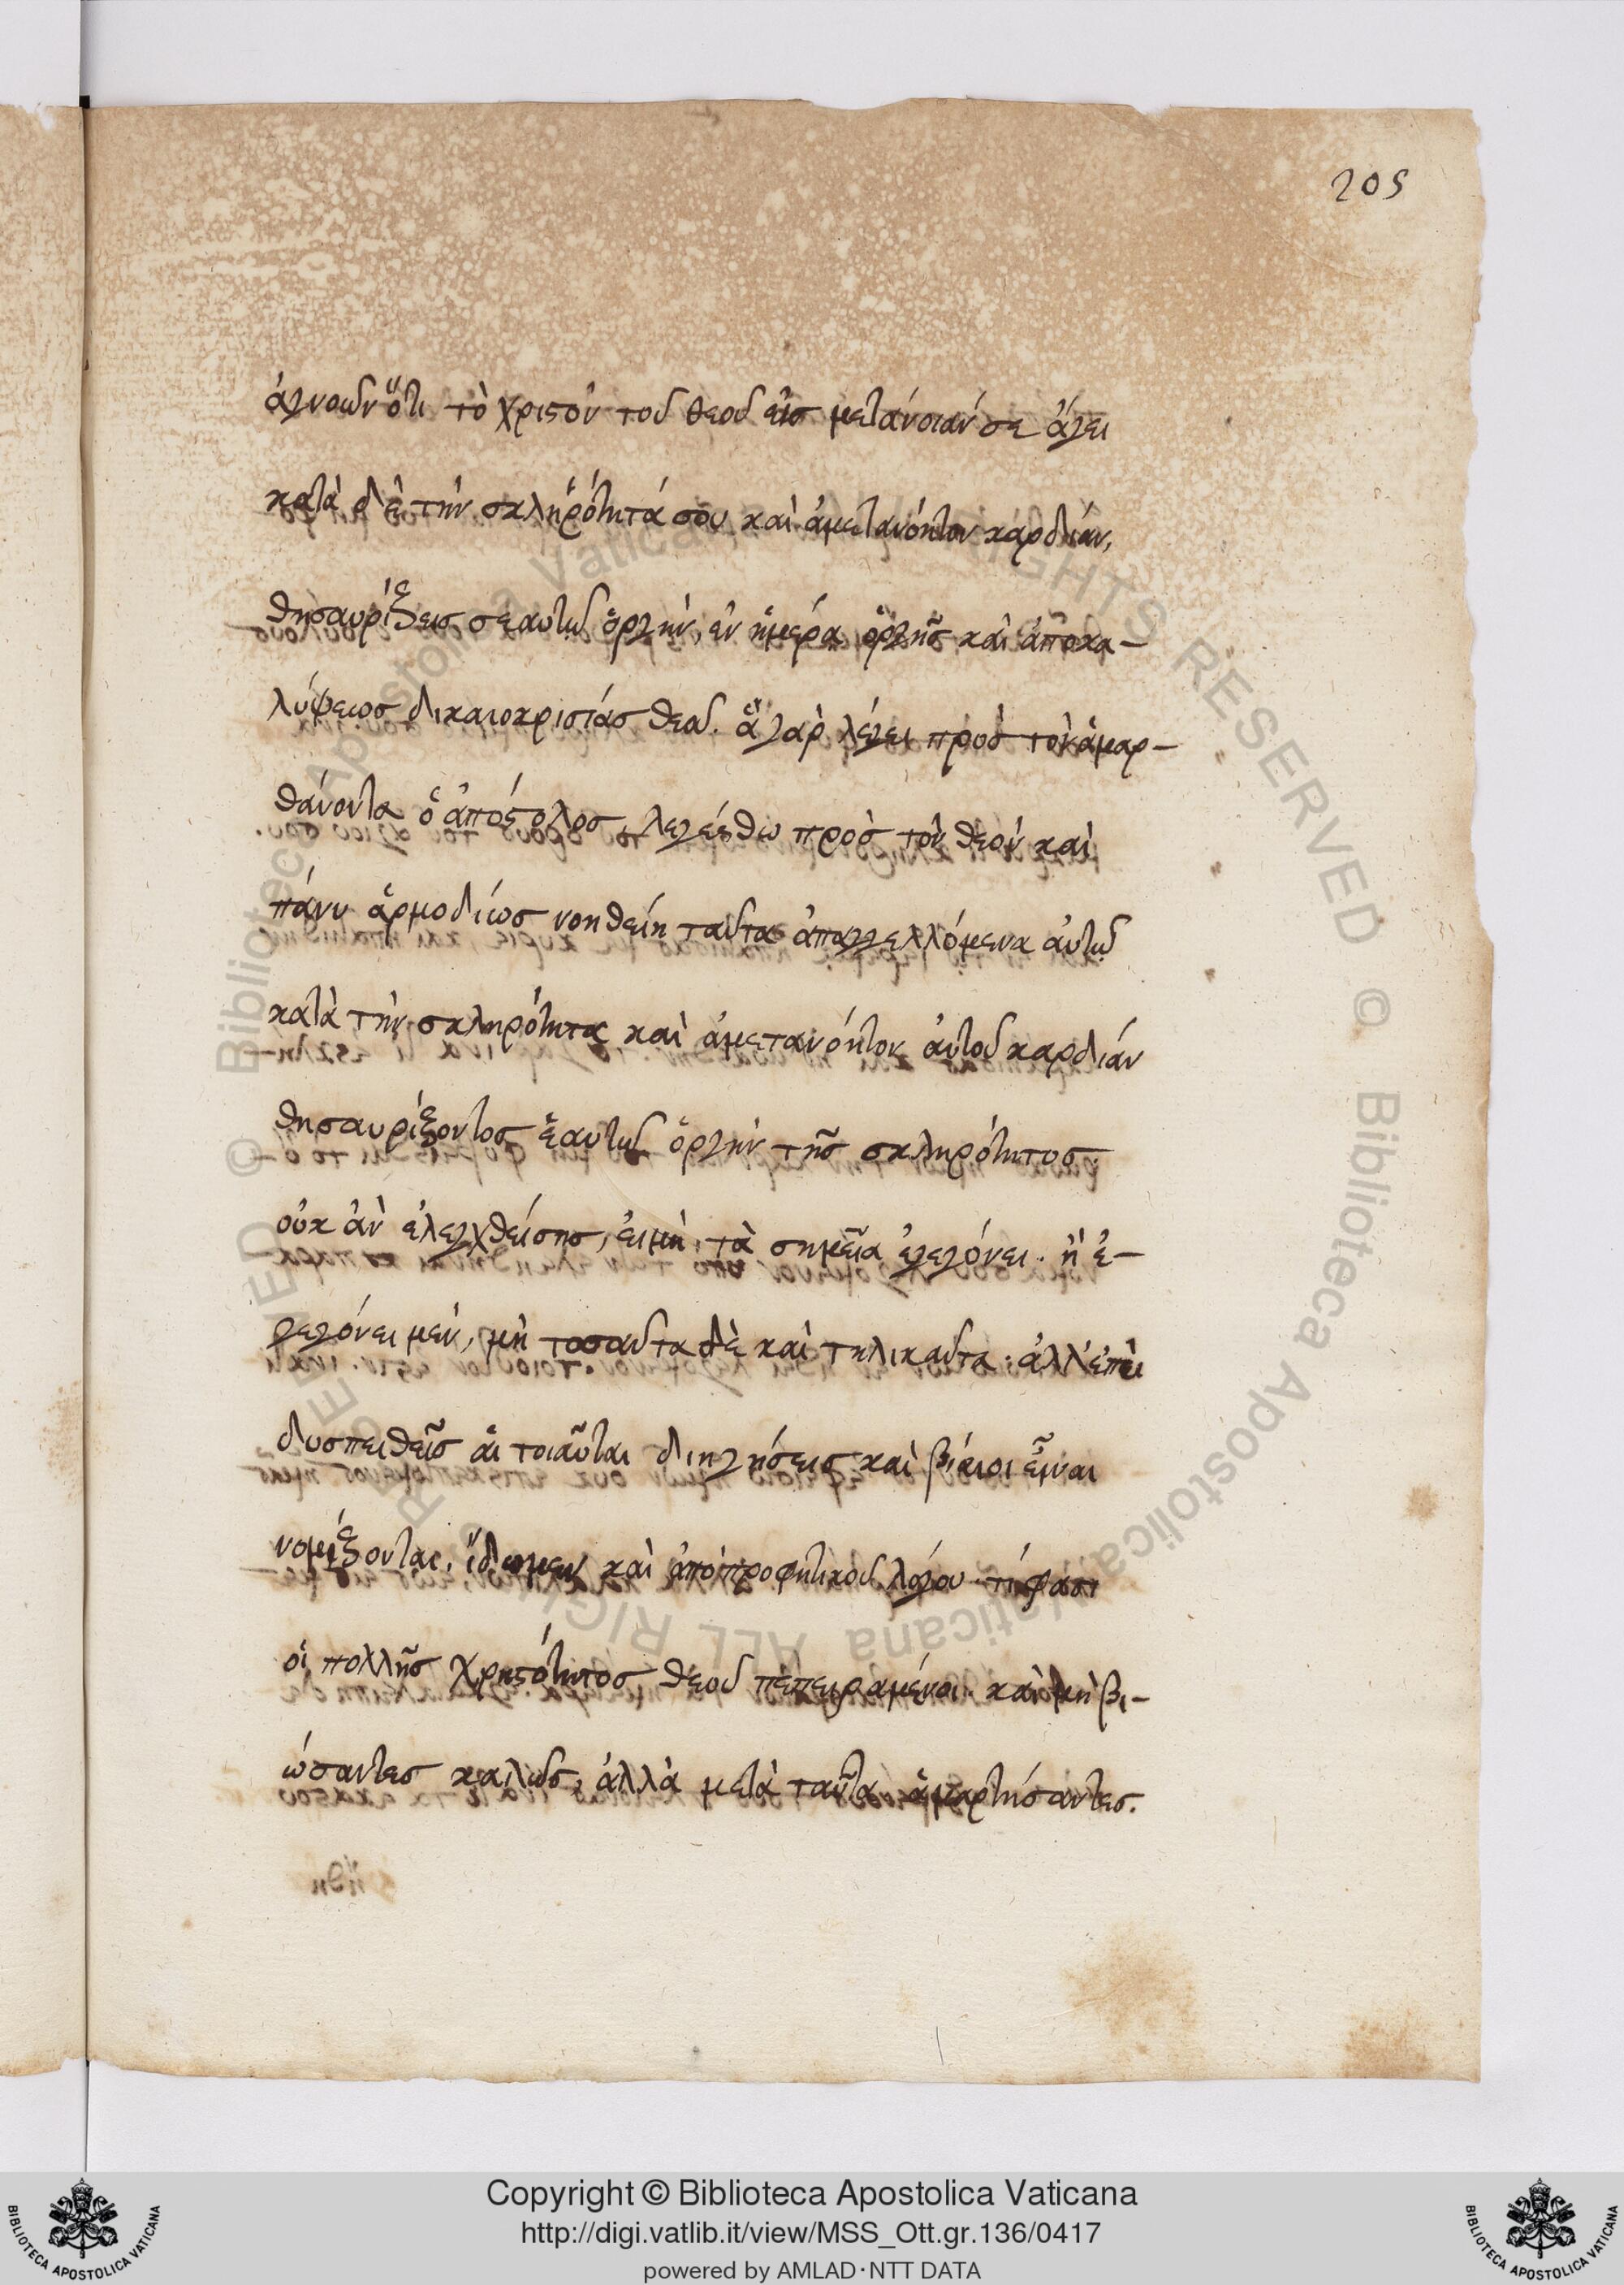 205
ἀγνοῶν ὅτι τὸ χριστὸν τοῦ θεοῦ εἰς μετάνοιάν σε ἄγει
κατὰ δὲ τὴν σκληρότητά σου καὶ ἀμετανόητον καρδίαν,
θησαυρίζεις σεαυτῷ ὀργὴν, ἐν ἡμέρα ὀργῆς καὶ ἀποκα-
λύψεως δικαιοκρισίας θεοῦ. ἃ γὰρ λέγει πρὸς τὸν ἁμαρ-
θάνοντα ὁ ἀπόστολος, λεγέσθω πρὸς τὸν θεὸν καὶ
πάνυ ἁρμοδίως νοηθείη ταῦτα ἀπαγγελλόμενα αὐτῷ
κατὰ τὴν σκληρότητα καὶ ἀμετανόητον αὐτοῦ καρδίαν
θησαυρίζοντος ἑαυτῷ ὀργὴν τῆς σκληρότητος
οὐκ ἂν ἐλεγχθείσης, εἰ μὴ τὰ σημεῖα ἐγεγόνει. ἢ ἐ-
γεγόνει μὲν, μὴ τοσαῦτα δὲ καὶ τηλικαῦτα. ἀλλ' ἐπεὶ
δυσπειθεῖς αἱ τοιαῦται διηγήσεις καὶ βίαιοι εἶναι
νομίζονται, ἴδωμεν καὶ ἀπὸ προφητικοῦ λόγου τί φασι
οἱ πολλῆς χρηστότητος θεοῦ πεπειραμένοι καὶ μὴ βι-
ώσαντες καλῶς, ἀλλὰ μετὰ ταῦτα ἁμαρτήσαντες.
© Biblioteca Apostolica Vaticana ALL RIGHTS RESERVED © Biblioteca Apostolica Vaticana ALL RIGHTS RESERVED
Copyright © Biblioteca Apostolica Vaticana
http://digi.vatlib.it/view/MSS_Ott.gr.136/0417
powered by AMLAD·NTT DATA
BIBLIOTECA APOSTOLICA VATICANA
BIBLIOTECA APOSTOLICA VATICANA